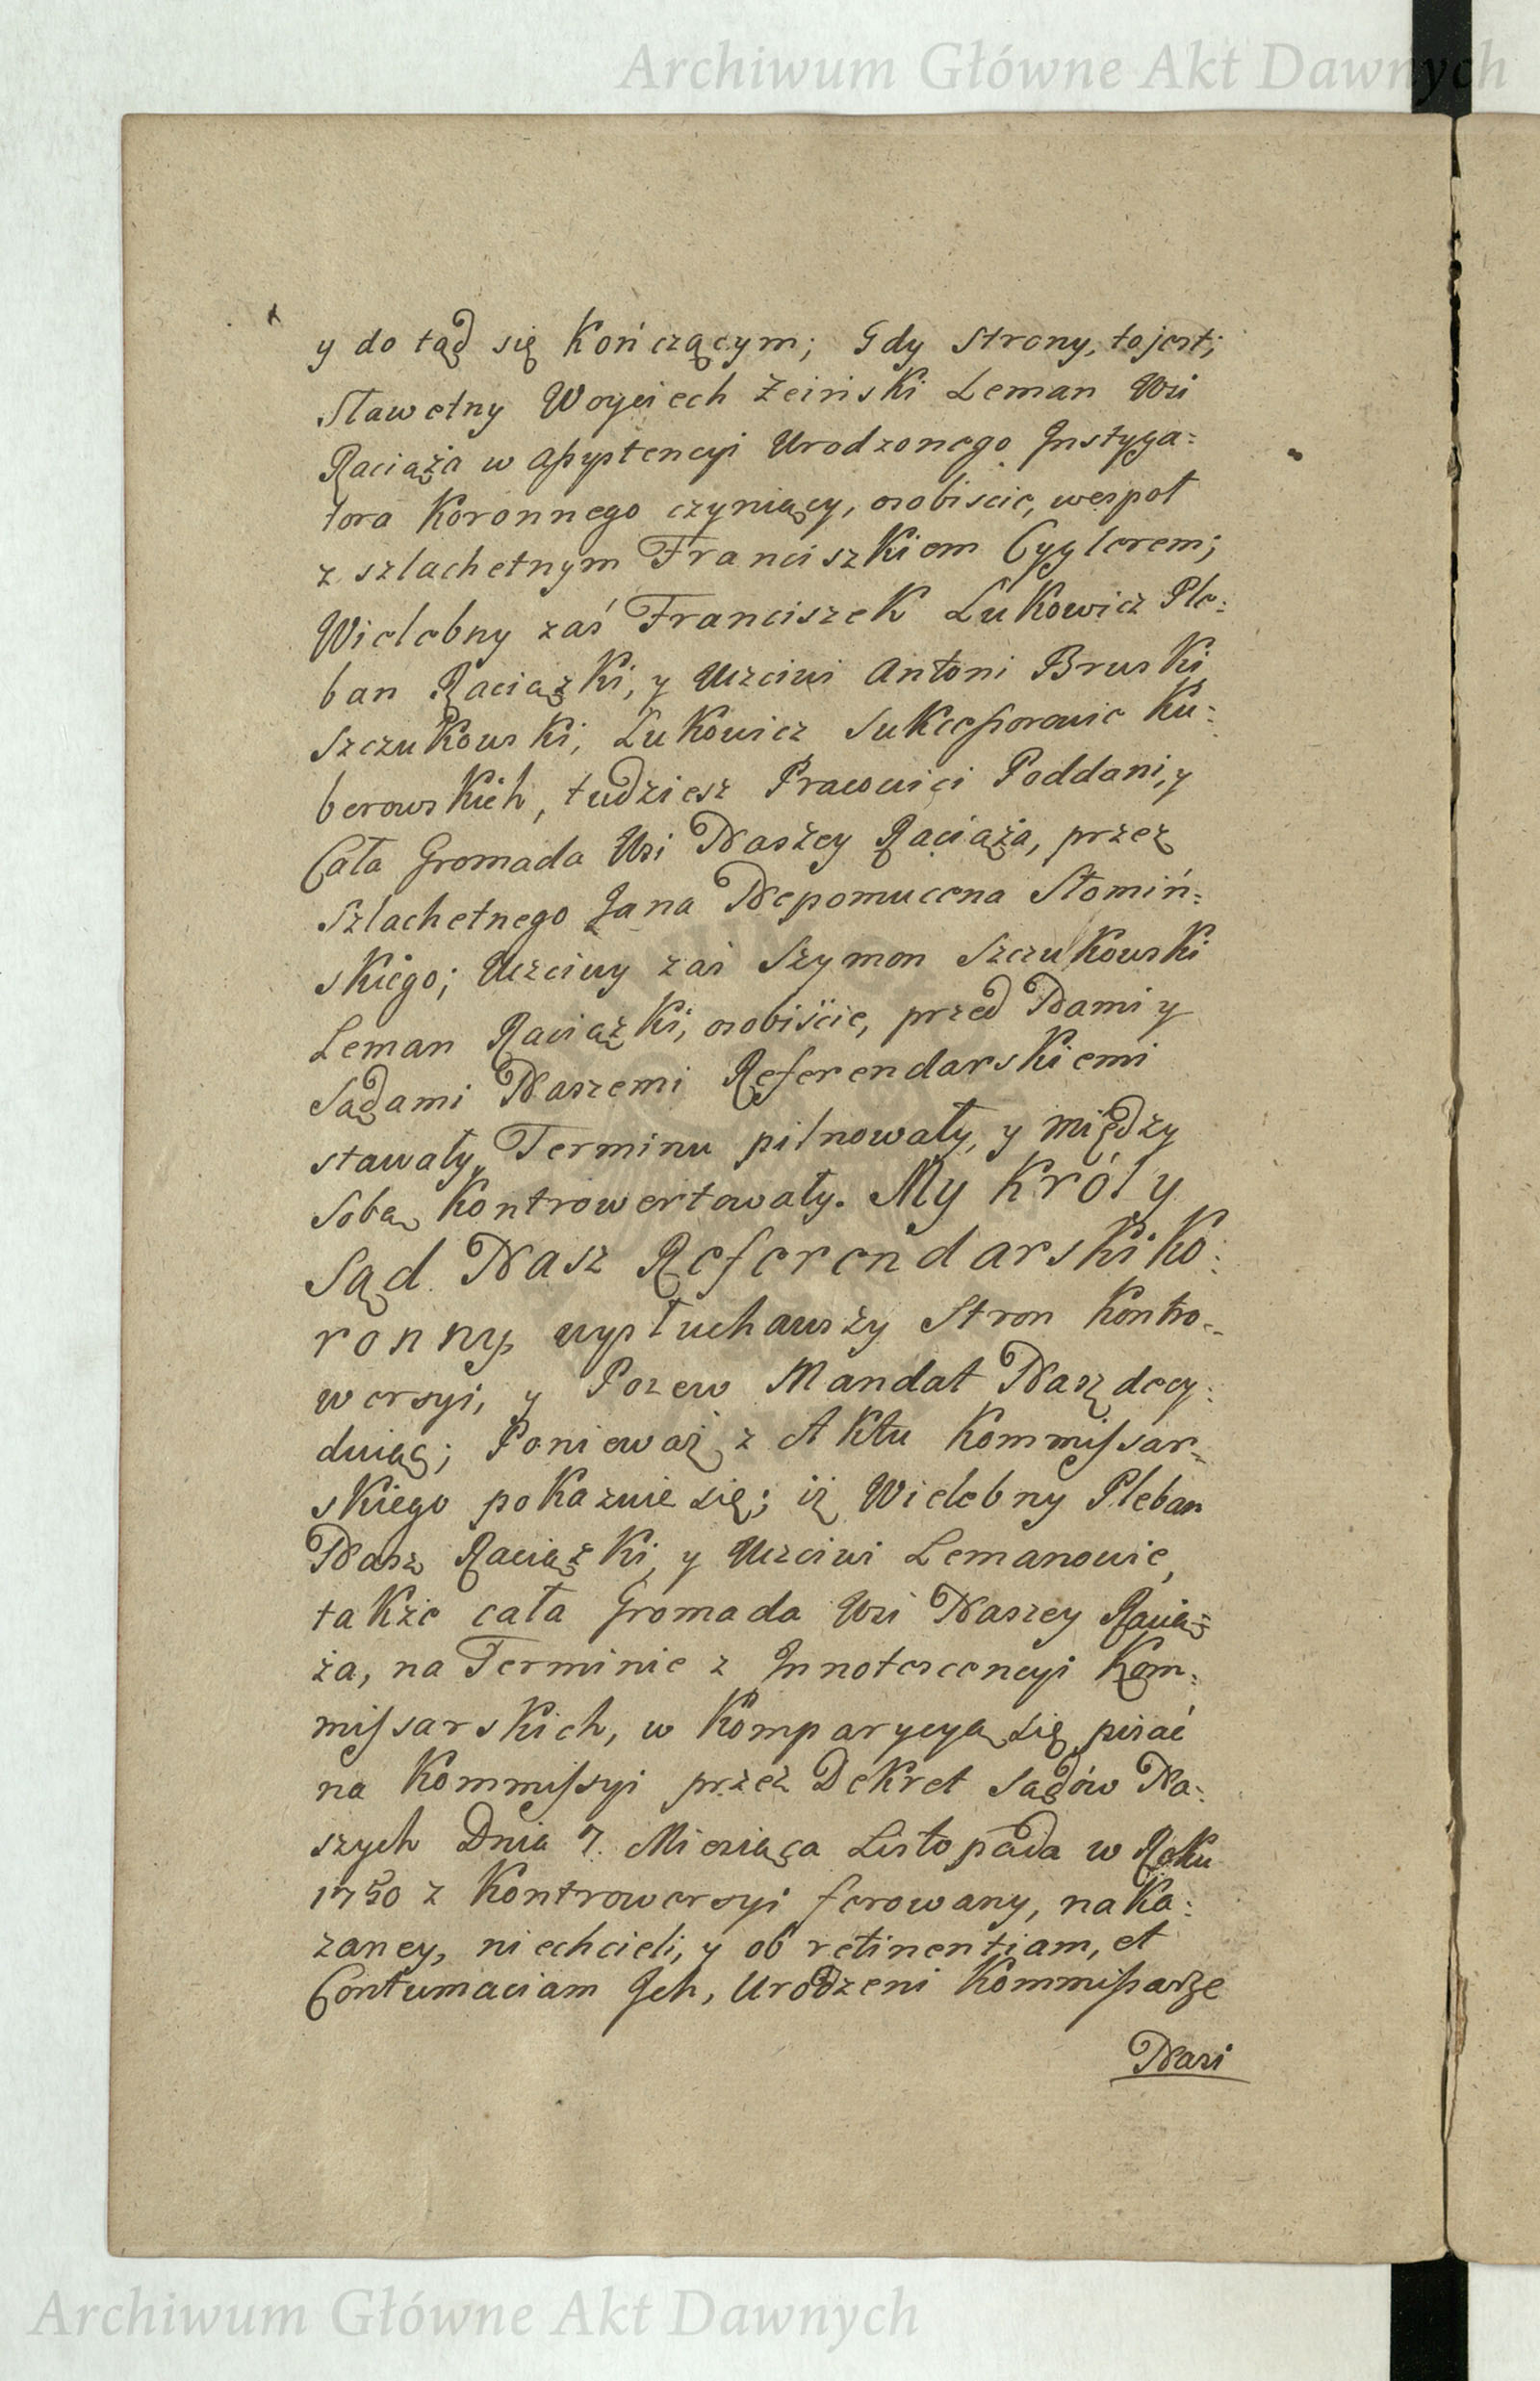 Archiwum Główne Akt Dawnych
y do tąd się Kończącym; Gdy Strony, to jest;
Sławetny Woyciech Zeiński Leman Wsi
Raciąża w Assystencyi Urodzonego Instyga=
tora Koronnego czyniący, osobiście, wespoł
z szlachetnym Franciszkiem Cyglerem;
Wielebny zaś Franciszek Łukowicz Ple=
ban Raciązki, y Uczciwi Antoni Bruski,
Szczukowski, Łukowicz Sukcessorowie Ku=
berowskich, tudziesz Pracowici Poddani, y
Cała Gromada Wsi Naszey Raciąża, przez
Szlachetnego Jana Nepomucena Słomiń=
skiego; Uczciwy zaś Szymon Szczukowski
Leman Raciązki, osobiście, przed Nami y
Sądami Naszemi Referendarskiemi
stawały, Terminu pilnowały, y między
Sobą Kontrowertowały. My Król y
Sąd Nasz Referendarski Ko=
ronny, wysłuchawszy Stron Kontro=
wersyi, y Pozew Mandat Nasz decy=
duiąc; Ponieważ z Aktu Kommissar=
skiego pokazuie się; iż Wielebny Pleban
Nasz Raciązki, y Uczciwi Lemanowie,
także cała Gromada Wsi Naszey Racią=
ża, na Terminie z Innotescencyi Kom=
missarskich, w Komparycyą się pisać
na Kommissyi przez Dekret Sądów Na=
szych Dnia 7. Miesiąca Listopada w Roku
1780 z Kontrowersyi ferowany, naka=
zaney, niechcieli, y ob retinentiam, et
Contumaciam Ich, Urodzeni Kommissarze
Nasi
Archiwum Główne Akt Dawnych